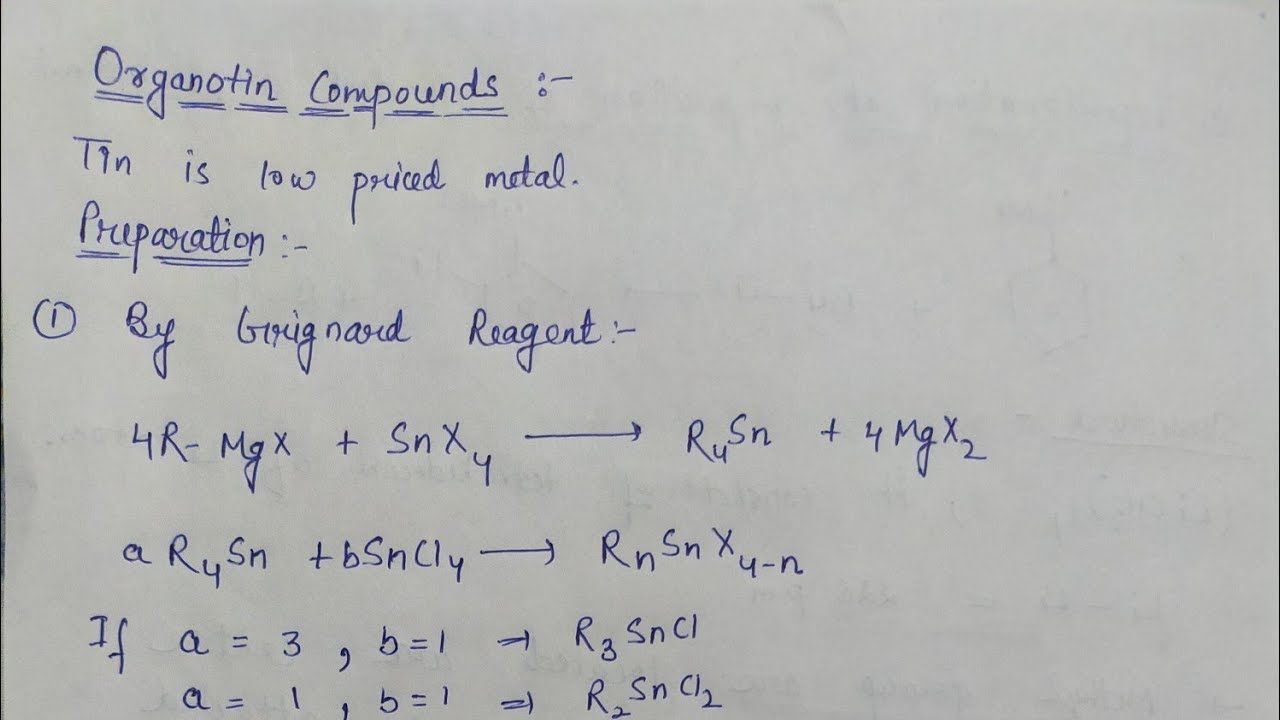 Organotin Compounds :-
Tin is low priced metal.
Preparation :-
① By Grignard Reagent :-
4R-MgX + SnX₄ ⟶ R₄Sn + 4MgX₂
a R₄Sn + bSnCl₄ ⟶ RₙSnX₄₋ₙ
If a = 3 , b = 1 ⇒ R₃SnCl
a = 1 , b = 1 ⇒ R₂SnCl₂